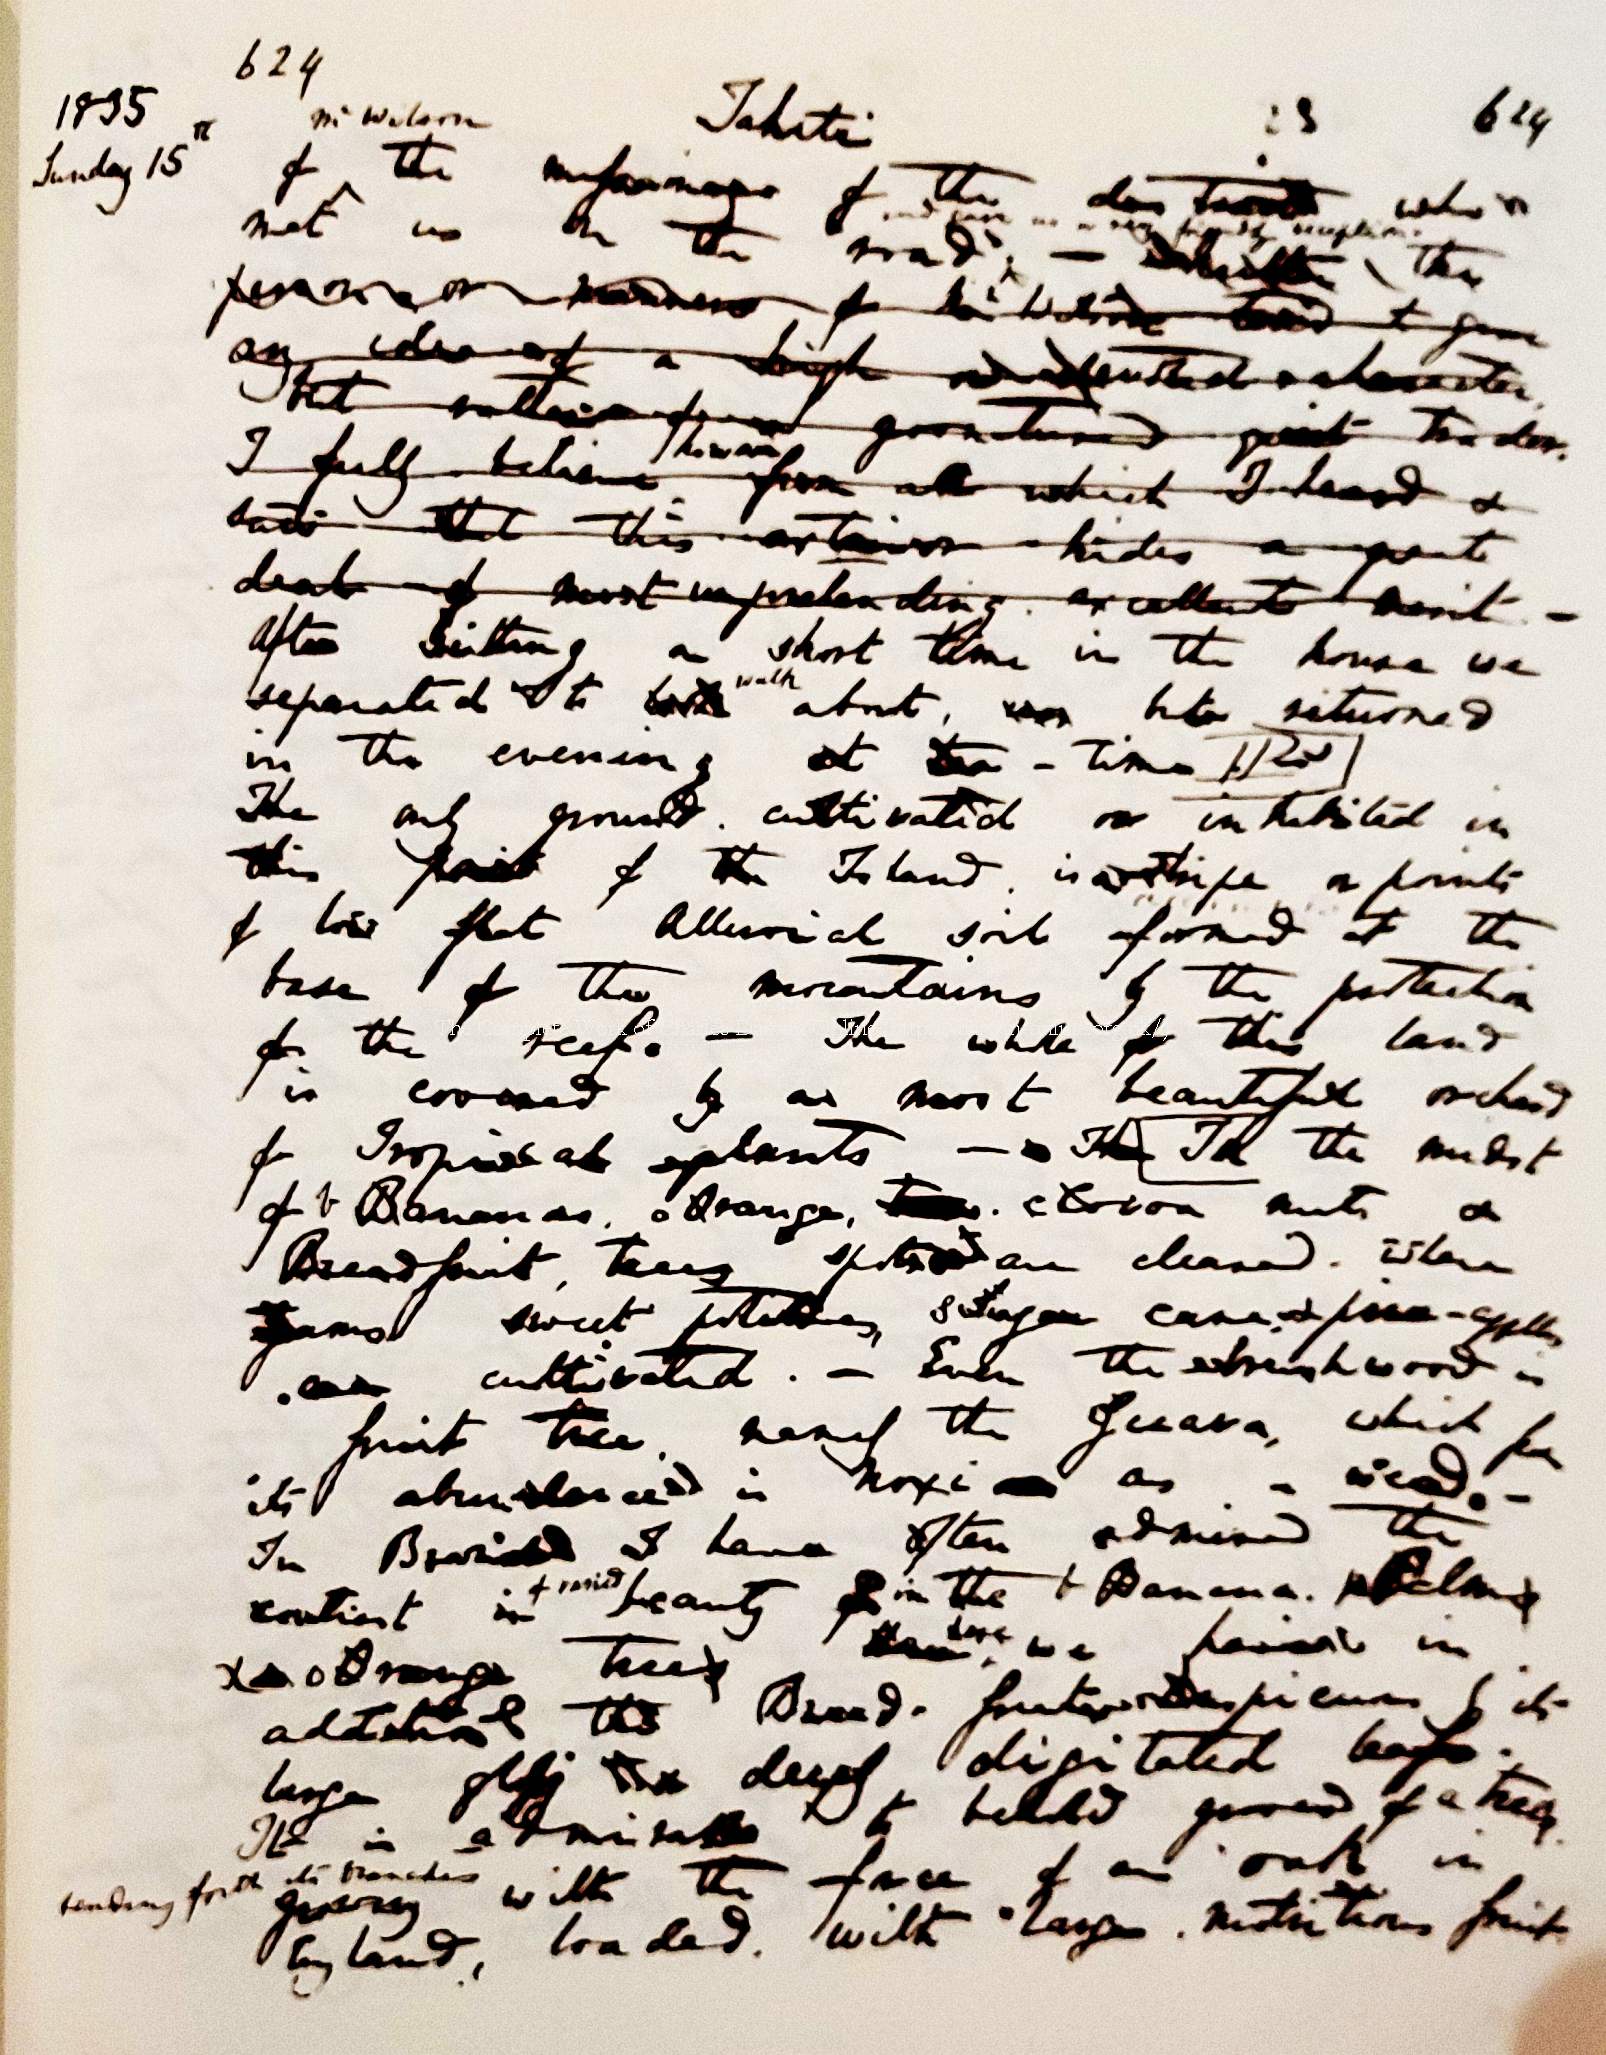 624
1835
Sunday 15th
Mr Wilson
Tahiti
23
624
of the missionary of the district who
and gave us a very friendly reception.
met us on the road. — the
person or manners of Mr Wilson tend to give
an idea of a high or devoted character,
but rather of a goodnatured quiet trader.
I fully believe however from all which I heard &
saw that this exterior hides a great
deal of most unpretending excellent merit. —
After sitting a short time in the house we
separated to walk about, but returned
in the evening at tea-time
The only ground cultivated or inhabited in
this part of the Island, is a stripe or points
of low flat Alluvial soil formed at the
base of the mountains by the protection
of the reefs. — The whole of this land
is covered by a most beautiful orchard
of Tropical plants — In the midst
of Bananas, Orange, Cocoa nuts &
Breadfruit, trees spots are cleared. where
Yams sweet potatoes, sugar cane & pine-apples
are cultivated. — Even the brushwood is
fruit tree, namely the Guava, which from
its abundance is noxi as a weed. —
In Brazil I have often admired the
contrast of varied beauty in the Banana. Palm
& Orange trees here we have in
addition the Bread-fruit conspicuous by its
large glossy & deeply digitated leaf.
It is admirable to behold groves of a tree,
sending forth its branches
growing with the force of an oak in
England, loaded with large nutritious fruit